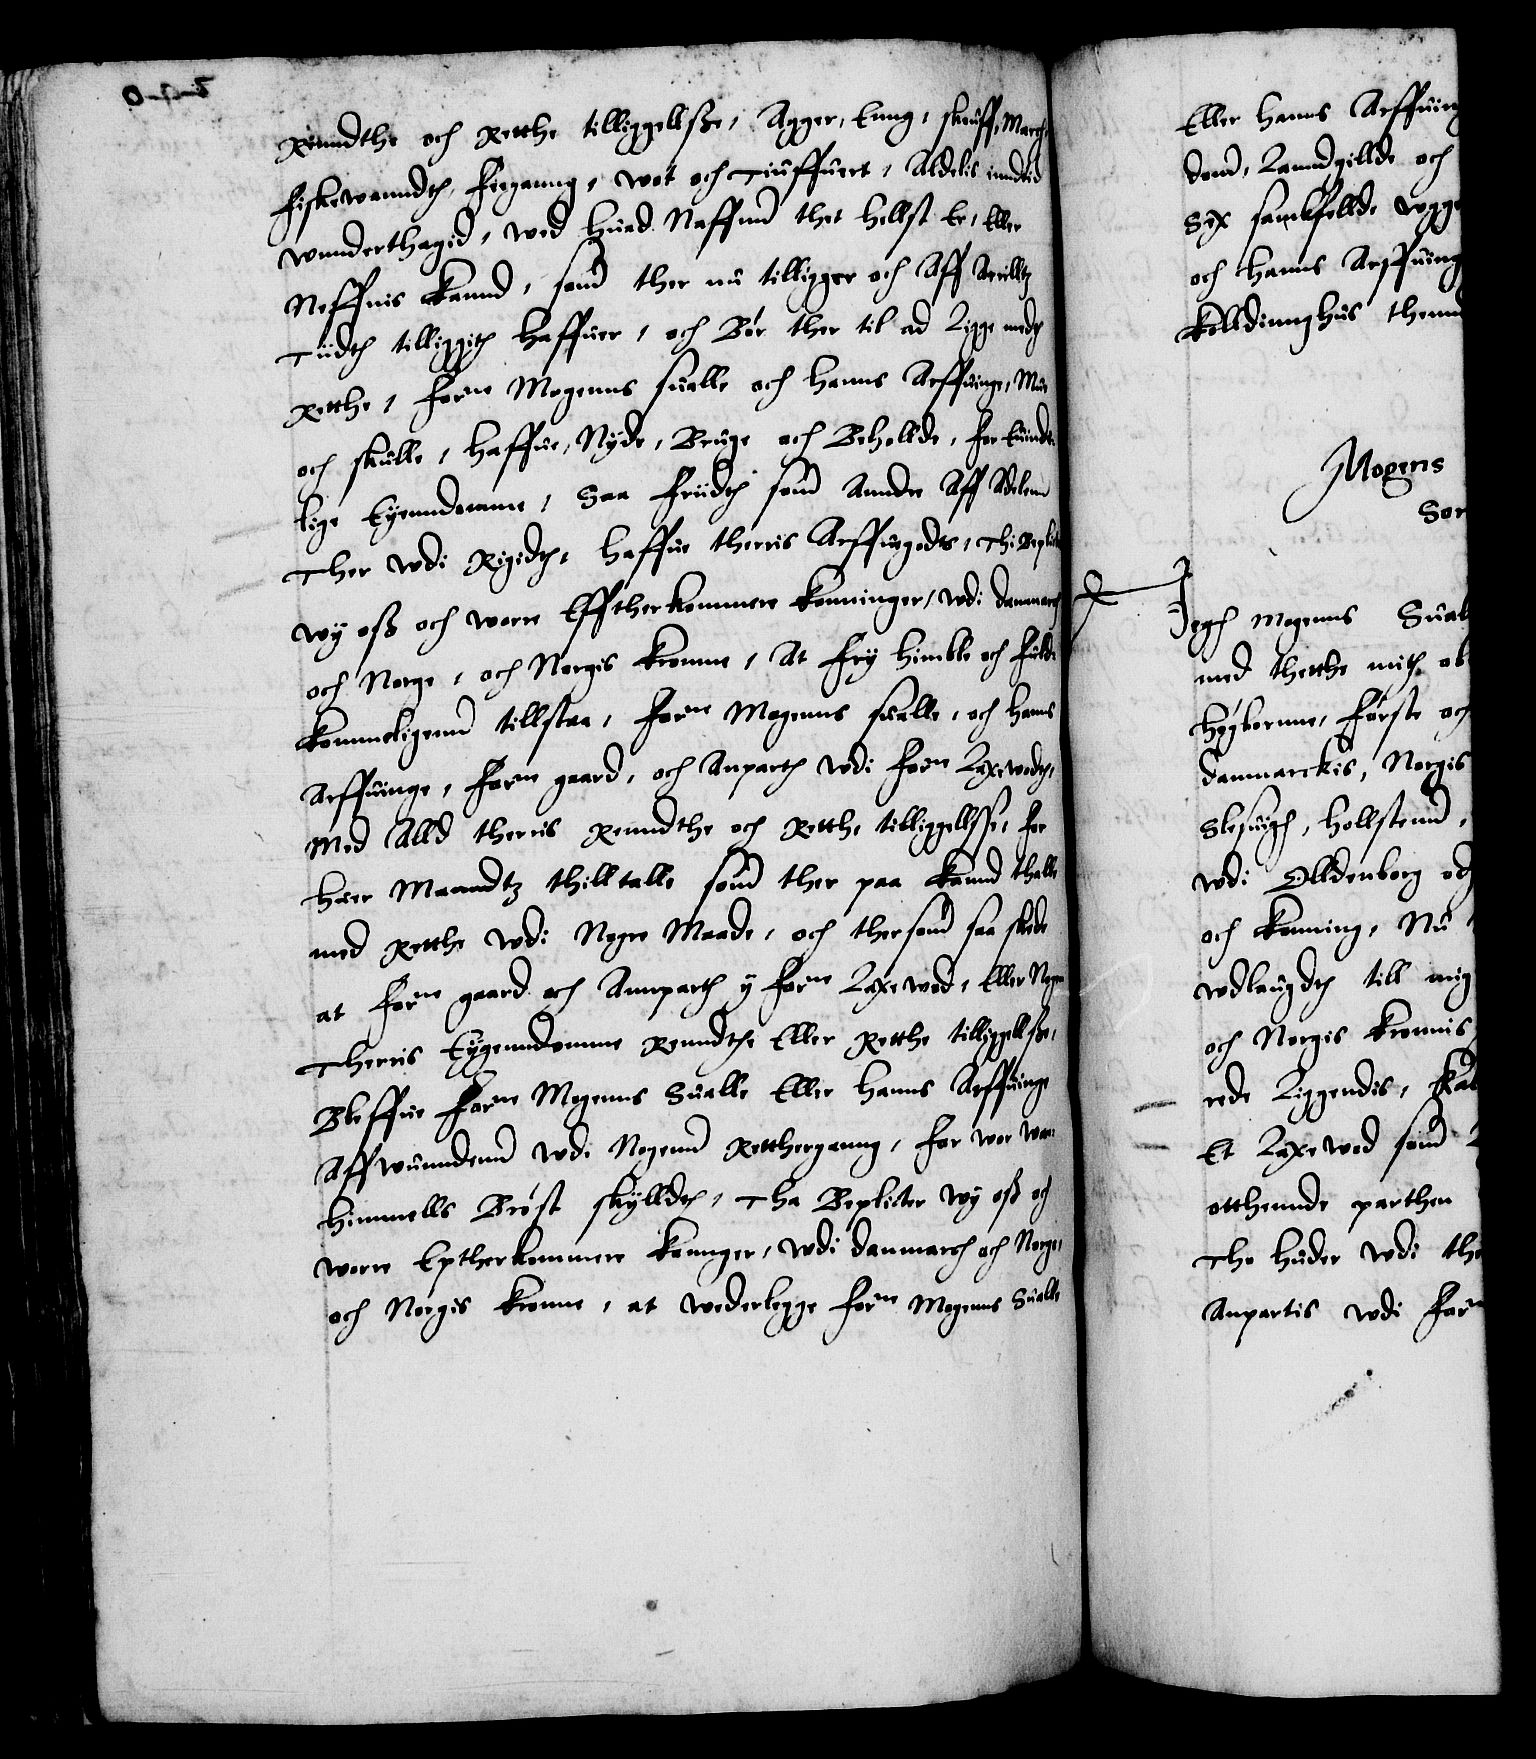 Renndthe och Retthe tilliggellße, Agger, Enng, skouff, March
fiskewanndh, feeganng, wot och Tiuffuert, Aldelis inndtid
wunderthagid, wed huad Naffnn thet hellst Er, Eller
Neffnis kannd, som ther nu tilligger och Aff Arrilltz
Tiidh tilliggith haffuer, och Bør ther til ad Ligge medh
Retthe, forne Mogenns sualle och hanns Arffuinge, Mue
och skulle, haffue, Nyde, Bruge och Behollde, for Euindt
lige Eyenndomme, Saa friidh som Anndre Aff Adelenn
Ther wdi Rigidh, haffue therris Arffuegodts, Thi Beplict
wy oß och worre Efftherkommere konninger, wdi danmarch
och Norge, och Norgis kronne, At fry himble och fuld
kommeligenn tillstaa, forne Mogenns sualle, och hanns
Arffuinge, forne gaard, och Anparth wdi forne Laxewedh,
Med Alld therris Renndthe och Retthe tilliggellsse, for
huer Manndtz thilltalle som ther paa kannd thalle
med Retthe wdi Nogre Maade, och thersom saa skede
at forne gaard och Annparth y forne Laxewed, Eller Nogen
Therris Eygenndomme Renndthe Eller Retthe tilliggellße,
Bleffue forne Mogenns Sualle Eller hanns Arffuinge
Aff wunndenn wdi Nogenn Rettherganng, for wor wan
himmells Brøst skylldh, Tha Beplicter wy oß och
worre Eptherkommere konnger, wdi danmarch och Norge,
och Norgis kronne, at wederlegge forne Mogenns Sualle
Eller hanns Arffuing
dom, Lanndgillde och
Sex samkfellde wgge
och hanns Arffuing
kolldinnghus thennd
Mogens
Sor
Jegh Mogenns Sual
med thetthe mith ob
høgbornne, første och
danmarckis, Norgis
Slesuigh, hollstenn,
wdi Olldenborg och
och konning, Nu
wdlaugdh till mig
och Norgis kronnis
rede Liggendis, skal
Et Laxewed som
otthennde parthen
Tho huder wdi the
Anpartis wdi forne